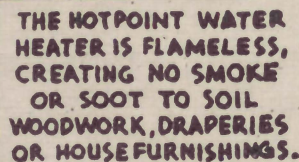 THE HOTPOINT WATER
HEATER IS FLAMELESS,
CREATING NO SMOKE
OR SOOT TO SOIL
WOODWORK, DRAPERIES
OR HOUSEFURNISHINGS.